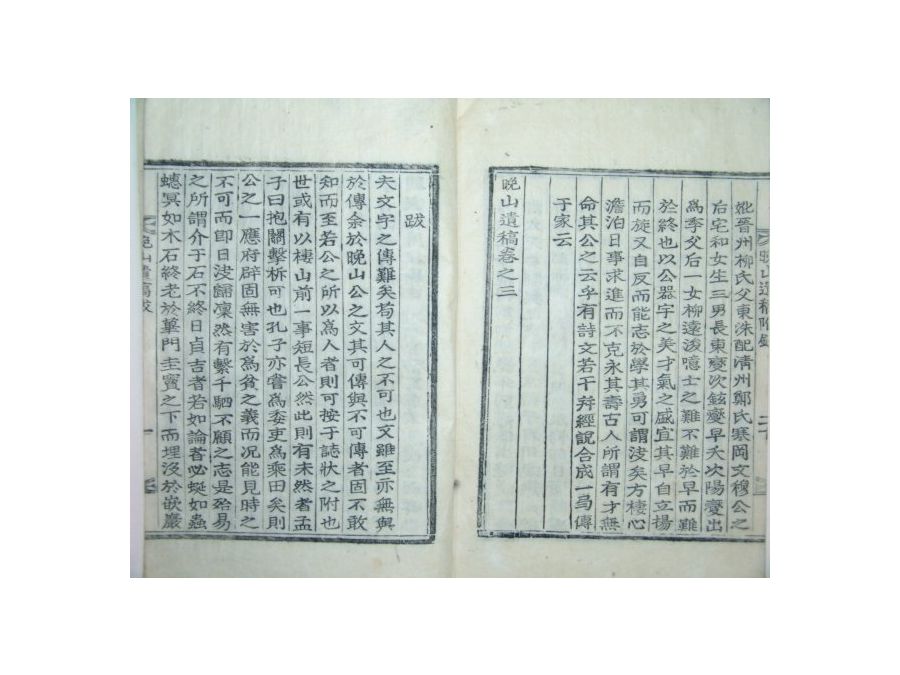 妣晉州柳氏父東洙配淸州鄭氏寒岡文穆公之
后宅和女生三男長東夔次鉉夔早夭次陽夔出
爲季父后一女柳遠浚噫士之難不難於早而難
於終也以公器宇之美才氣之盛宜其早自立揚
而旋又自反而能志於學其勇可謂浚矣方棲心
澹泊日事求進而不克永其壽古人所謂有才無
命其公之云乎有詩文若干幷經說合成一局傳
于家云
晩山遺稿卷之三
跋
夫文字之傳難矣苟其人之不可也文雖至亦無與
於傳余於晩山公之文其可傳與不可傳者固不敢
知而至若公之所以爲人者則可按于誌狀之附也
世或有以樓山前一事短長公然此則有未然者孟
子曰抱關擊柝可也孔子亦嘗爲委吏爲乘田矣則
公之一應府辟固無害於爲貧之義而況能見時之
不可而卽日浚歸凜然有繫千駟不顧之志是殆易
之所謂介于石不終日貞吉者若如論者必蜒如蟲
蟋冥如木石終老於蓽門圭竇之下而埋沒於嵌巖
晩山遺稿跋
一